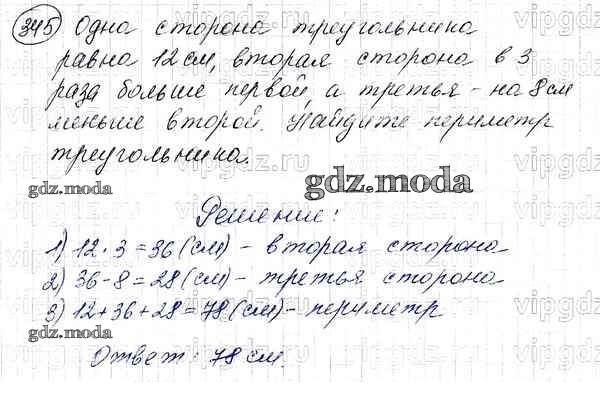 345) Одна сторона треугольника
равна 12 см, вторая сторона в 3
раза больше первой а третья - на 8 см
меньше второй. Найдите периметр
треугольника.
gdz.moda
gdz.moda
Решение:
1) 12 · 3 = 36 (см) - вторая сторона
2) 36 - 8 = 28 (см) - третья сторона
3) 12 + 36 + 28 = 78 (см) - периметр
gdz.moda
Ответ: 78 см.